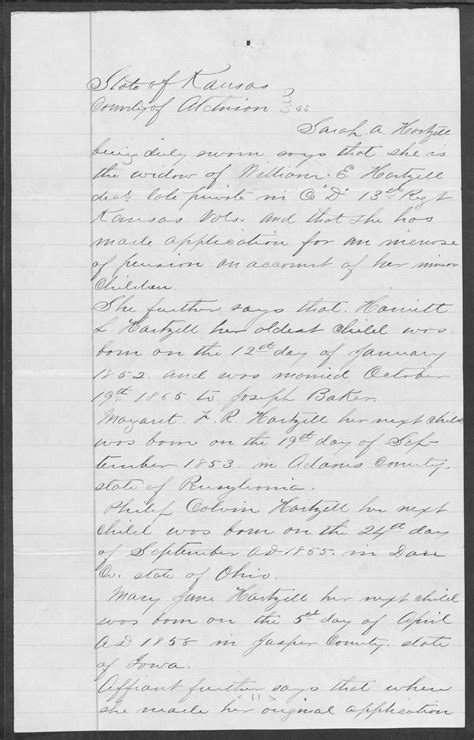 State of Kansas
County of Atchison } ss
Sarah A. Hartzell
being duly sworn says that she is
the widow of William E. Hartzell
decd. late private in Co "D" 13th Regt
Kansas Vols. and that she has
made application for an increase
of pension on account of her minor
Children.
She further says that Harriett
L Hartzell her oldest child was
born on the 12th day of January
1852 and was married October
19th 1865 to Joseph Baker
Margaret. F. R. Hartzell her next child
was born on the 19th day of Sep
tember 1853. in Adams County.
state of
Philip Colvin Hartzell her next
child was born on the 24th day
of September AD 1855. in
Co. state of Ohio.
Mary Jane Hartzell her next child
was born on the 5th day of April
AD 1858 in Jasper County. state
of Iowa.
Affiant further says that when
she made her original application